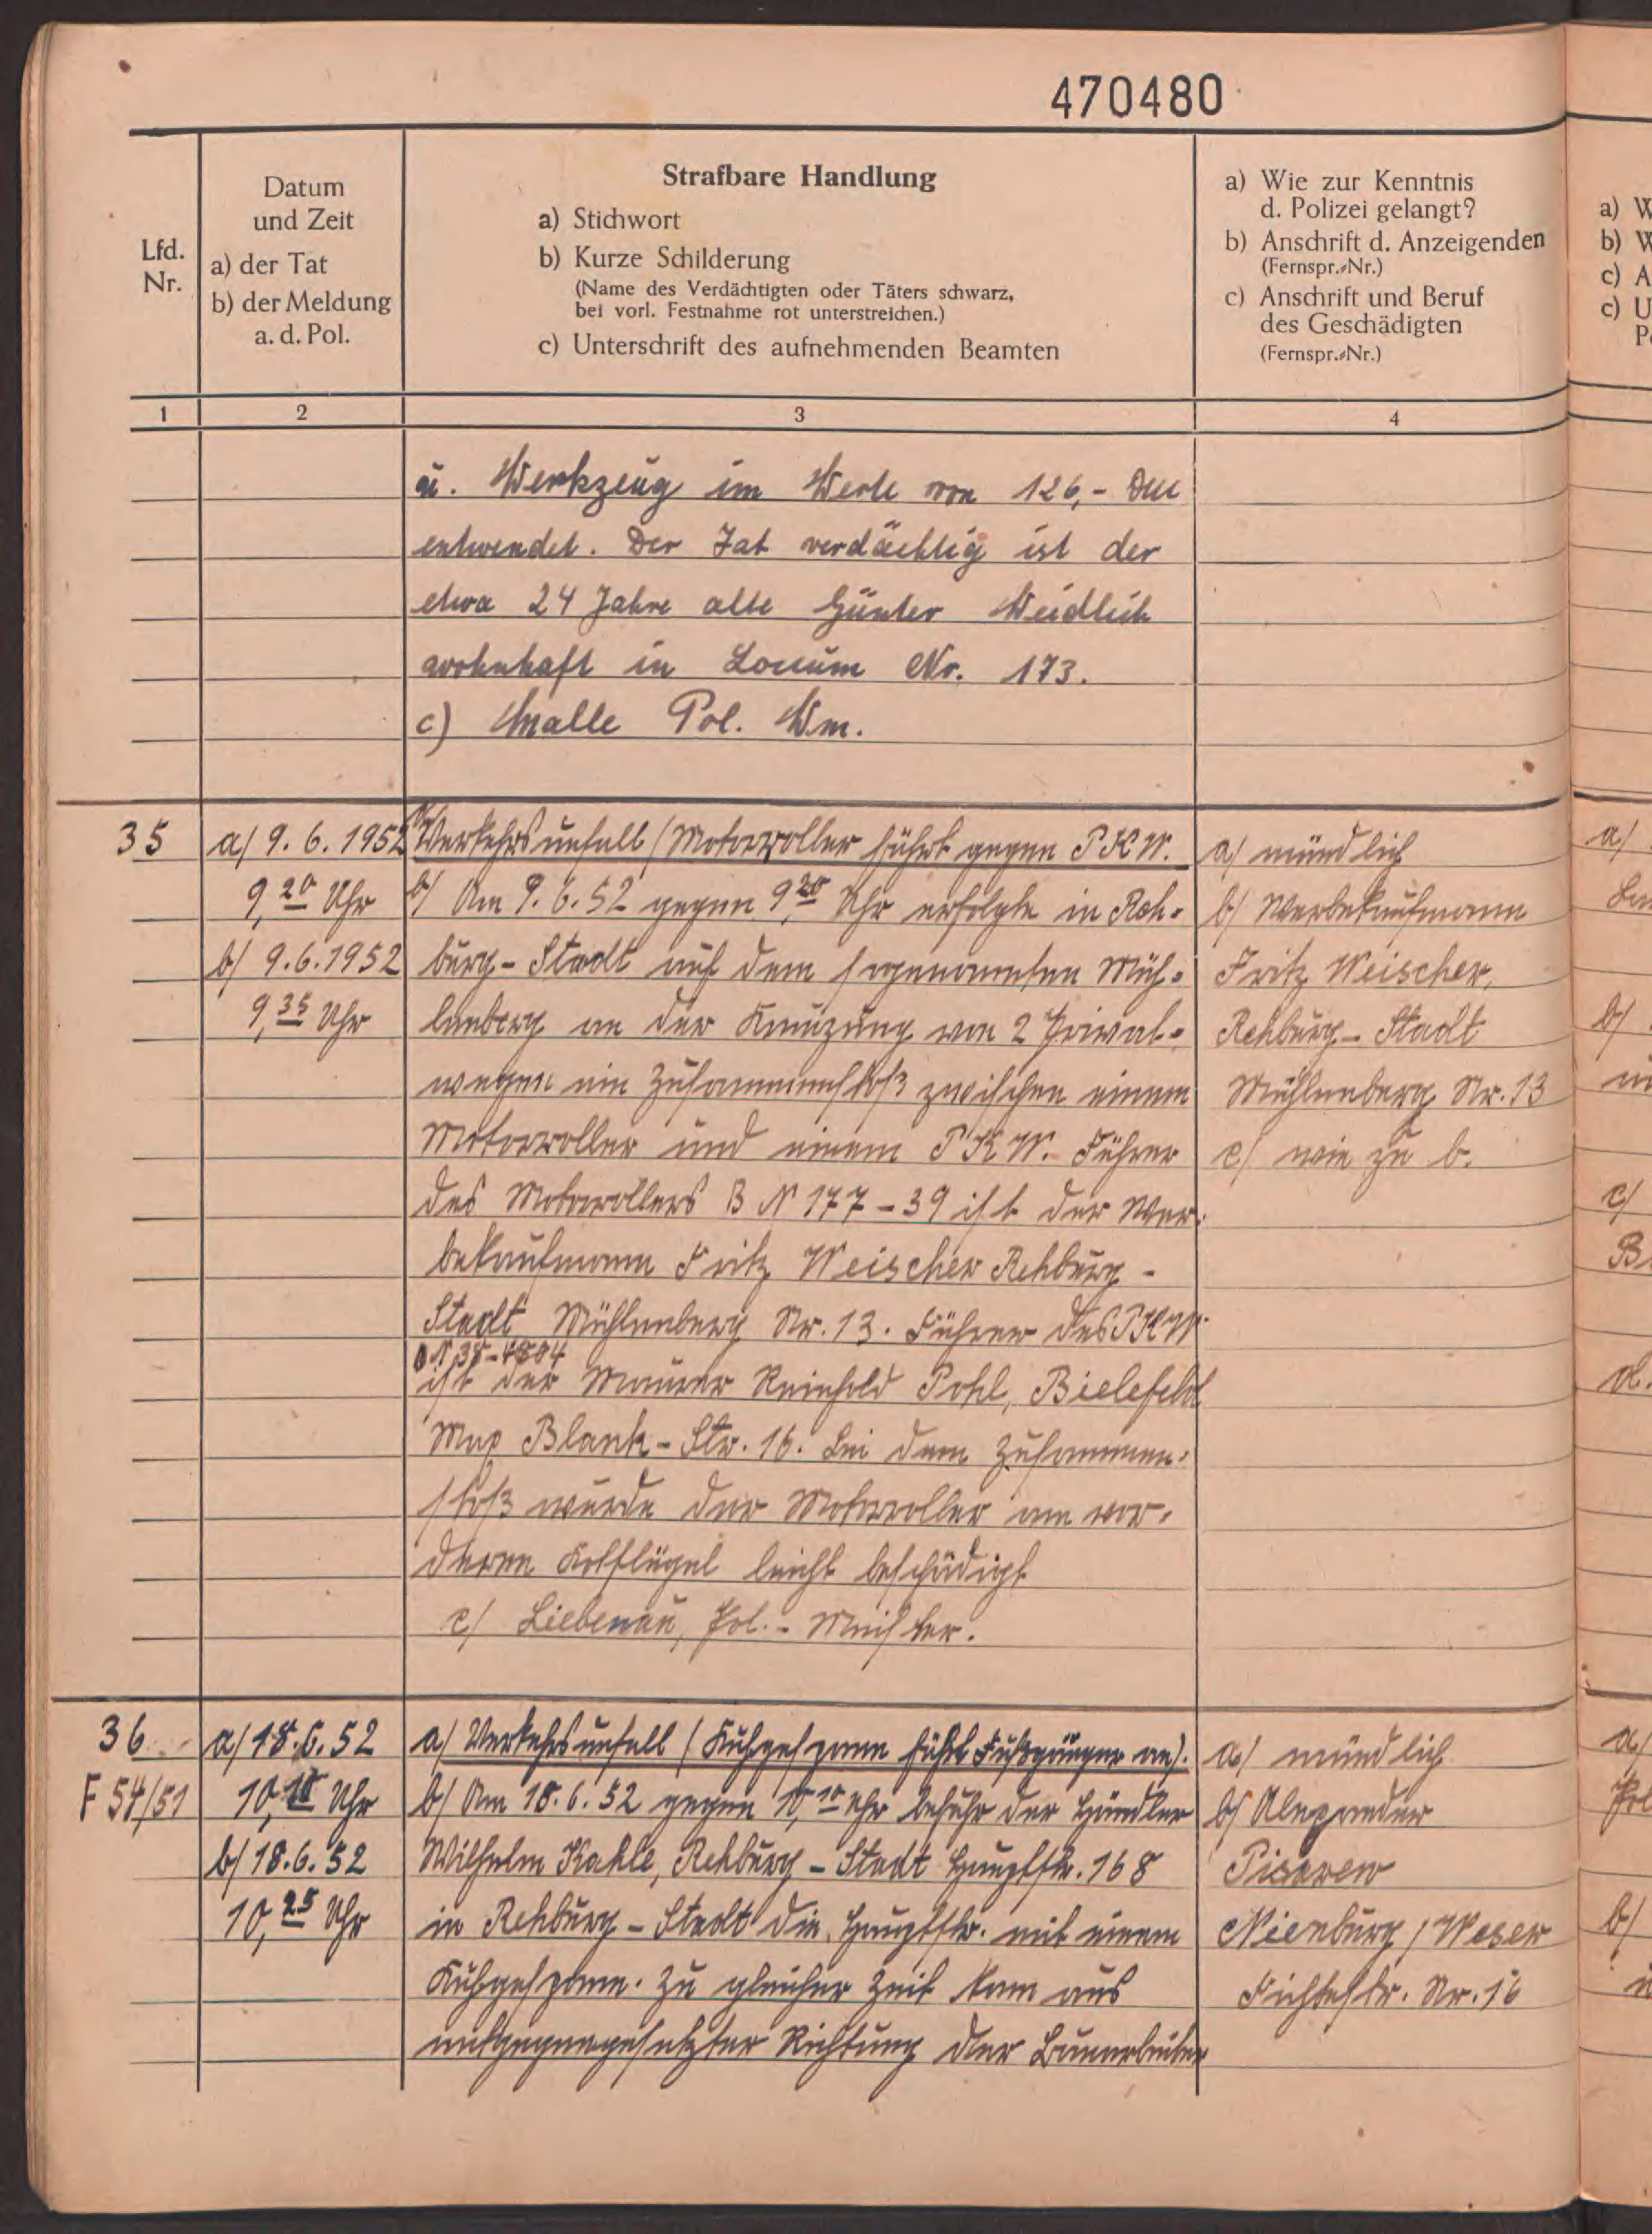 470480
Lfd.
Nr.
Datum
und Zeit
a) der Tat
b) der Meldung
a. d. Pol.
Strafbare Handlung
a) Stichwort
b) Kurze Schilderung
(Name des Verdächtigten oder Täters schwarz,
bei vorl. Festnahme rot unterstreichen.)
c) Unterschrift des aufnehmenden Beamten
a) Wie zur Kenntnis
d. Polizei gelangt?
b) Anschrift d. Anzeigenden
(Fernspr.-Nr.)
c) Anschrift und Beruf
des Geschädigten
(Fernspr.-Nr.)
1
2
3
4
u. Werkzeug im Werte von 126,- DM
entwendet. Der Tat verdächtig ist der
etwa 24 Jahre alte Günter Weidlich
wohnhaft in Loccum Nr. 173.
c) Malle Pol. Wm.
35
a/ 9. 6. 1952
9,20 Uhr
b/ 9.6.1952
9,35 Uhr
a/ Verkehrsunfall (Motorroller fährt gegen PKW.
b/ Am 9. 6. 52 gegen 9,20 Uhr erfolgte in Reh-
burg-Stadt auf dem sogenannten Müh-
lenberg an der Kreuzung von 2 Privat-
wegen ein Zusammenstoß zwischen einem
Motorroller und einem PKW. Führer
des Motorrollers B N 177-39 ist der Wer-
bekaufmann Fritz Weischer Rehburg-
Stadt Mühlenberg Nr. 13. Führer des PKW
ist der Maurer Reinhold Pohl, Bielefeld
Max Blank-Str. 16. Bei dem Zusammen-
stoß wurde der Motorroller am vor-
deren Kotflügel leicht beschädigt
c/ Liebenau, Pol.-Meister.
a/ mündlich
b/ Werbekaufmann
Fritz Weischer,
Rehburg-Stadt
Mühlenberg Nr. 13
c/ wie zu b.
36
F 54/51
a/ 18.6.52
10,10 Uhr
b/ 18.6.52
10,25 Uhr
a/ Verkehrsunfall (Kuhgespann fährt Fußgänger an).
b/ Am 18.6.52 gegen 10,10 Uhr befuhr der Händler
Wilhelm Kahle, Rehburg-Stadt Hauptstr. 168
in Rehburg-Stadt die Hauptstr. mit einem
Kuhgespann. Zu gleicher Zeit kam aus
entgegengesetzter Richtung der Bauarbeiter
a/ mündlich
b/ Alexander
Pisarew
Nienburg / Weser
Fichtestr. Nr. 16